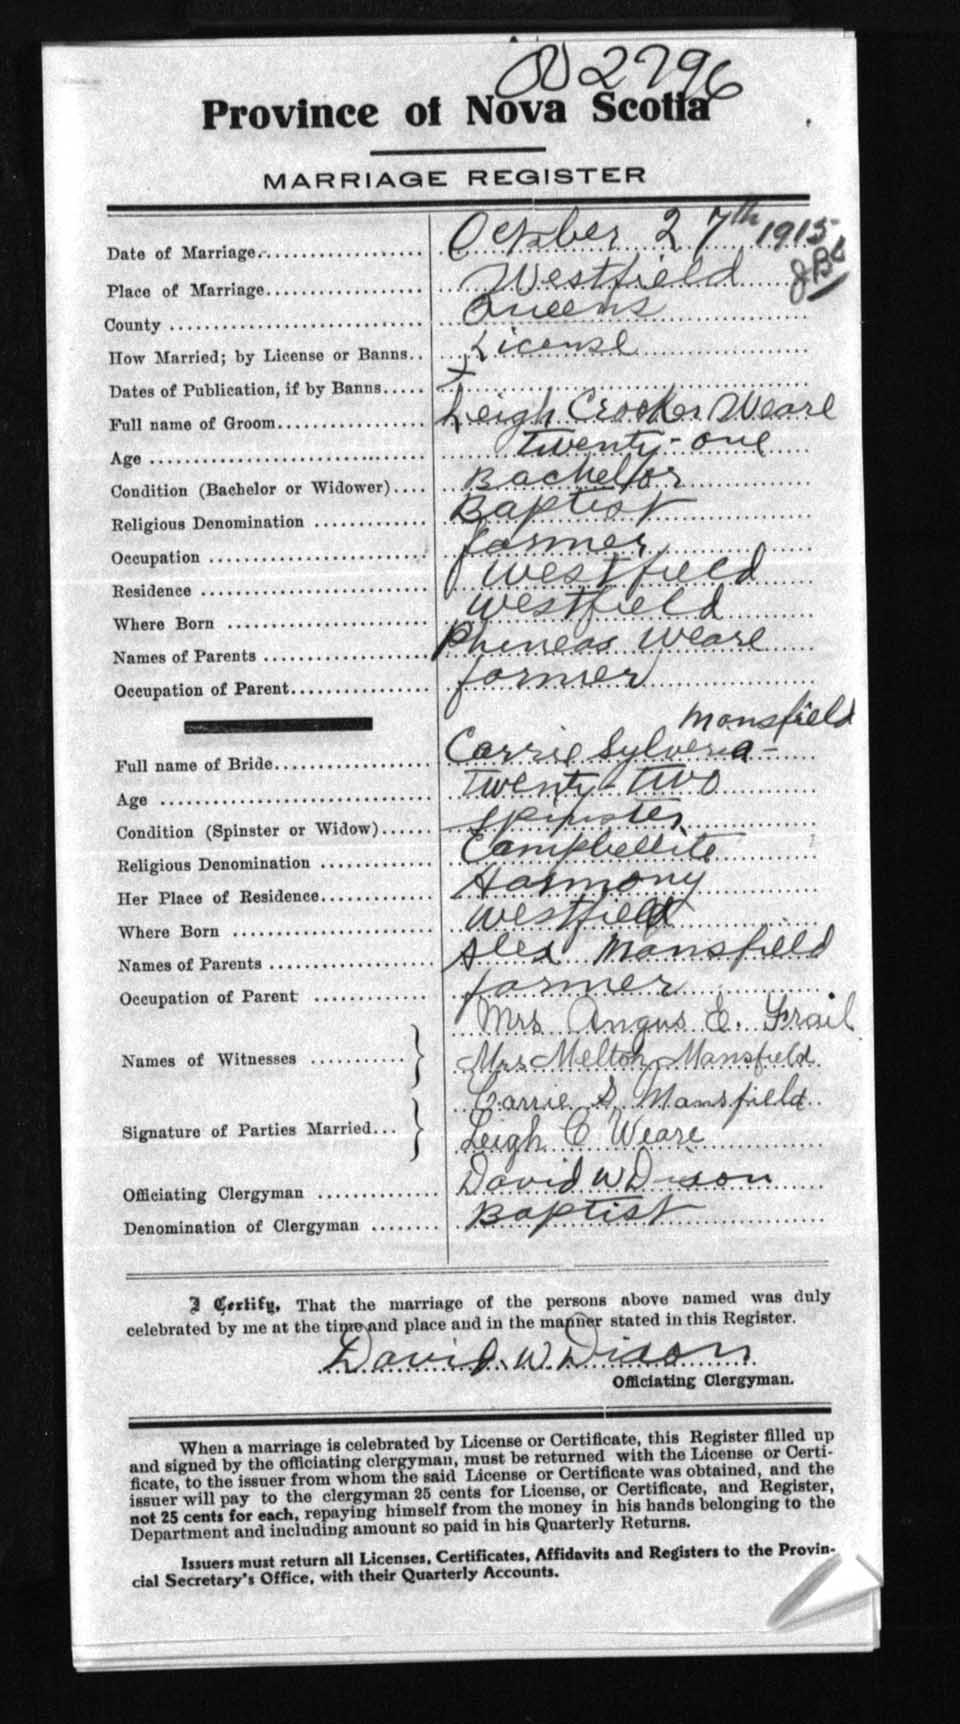 N 2796
Province of Nova Scotia
MARRIAGE REGISTER
Date of Marriage October 27th 1915
JBC
Place of Marriage Westfield
County Queens
How Married; by License or Banns License
Dates of Publication, if by Banns
Full name of Groom Leigh Crooker Weare
Age twenty-one
Condition (Bachelor or Widower) Bachelor
Religious Denomination Baptist
Occupation farmer
Residence Westfield
Where Born Westfield
Names of Parents Phineas Weare
Occupation of Parent farmer
Mansfield
Full name of Bride Carrie Sylveria-
Age twenty-two
Condition (Spinster or Widow) Spinster
Religious Denomination Campbellite
Her Place of Residence Harmony
Where Born Westfield
Names of Parents Alex Mansfield
Occupation of Parent farmer
Mrs Angus E. Frail
Names of Witnesses Mrs Melton Mansfield
Carrie S. Mansfield
Signature of Parties Married Leigh C Weare
Officiating Clergyman David W Dixon
Denomination of Clergyman Baptist
I Certify, That the marriage of the persons above named was duly
celebrated by me at the time and place and in the manner stated in this Register.
David W Dixon
Officiating Clergyman.
When a marriage is celebrated by License or Certificate, this Register filled up
and signed by the officiating clergyman, must be returned with the License or Certi-
ficate, to the issuer from whom the said License or Certificate was obtained, and the
issuer will pay to the clergyman 25 cents for License, or Certificate, and Register,
not 25 cents for each, repaying himself from the money in his hands belonging to the
Department and including amount so paid in his Quarterly Returns.
Issuers must return all Licenses, Certificates, Affidavits and Registers to the Provin-
cial Secretary's Office, with their Quarterly Accounts.